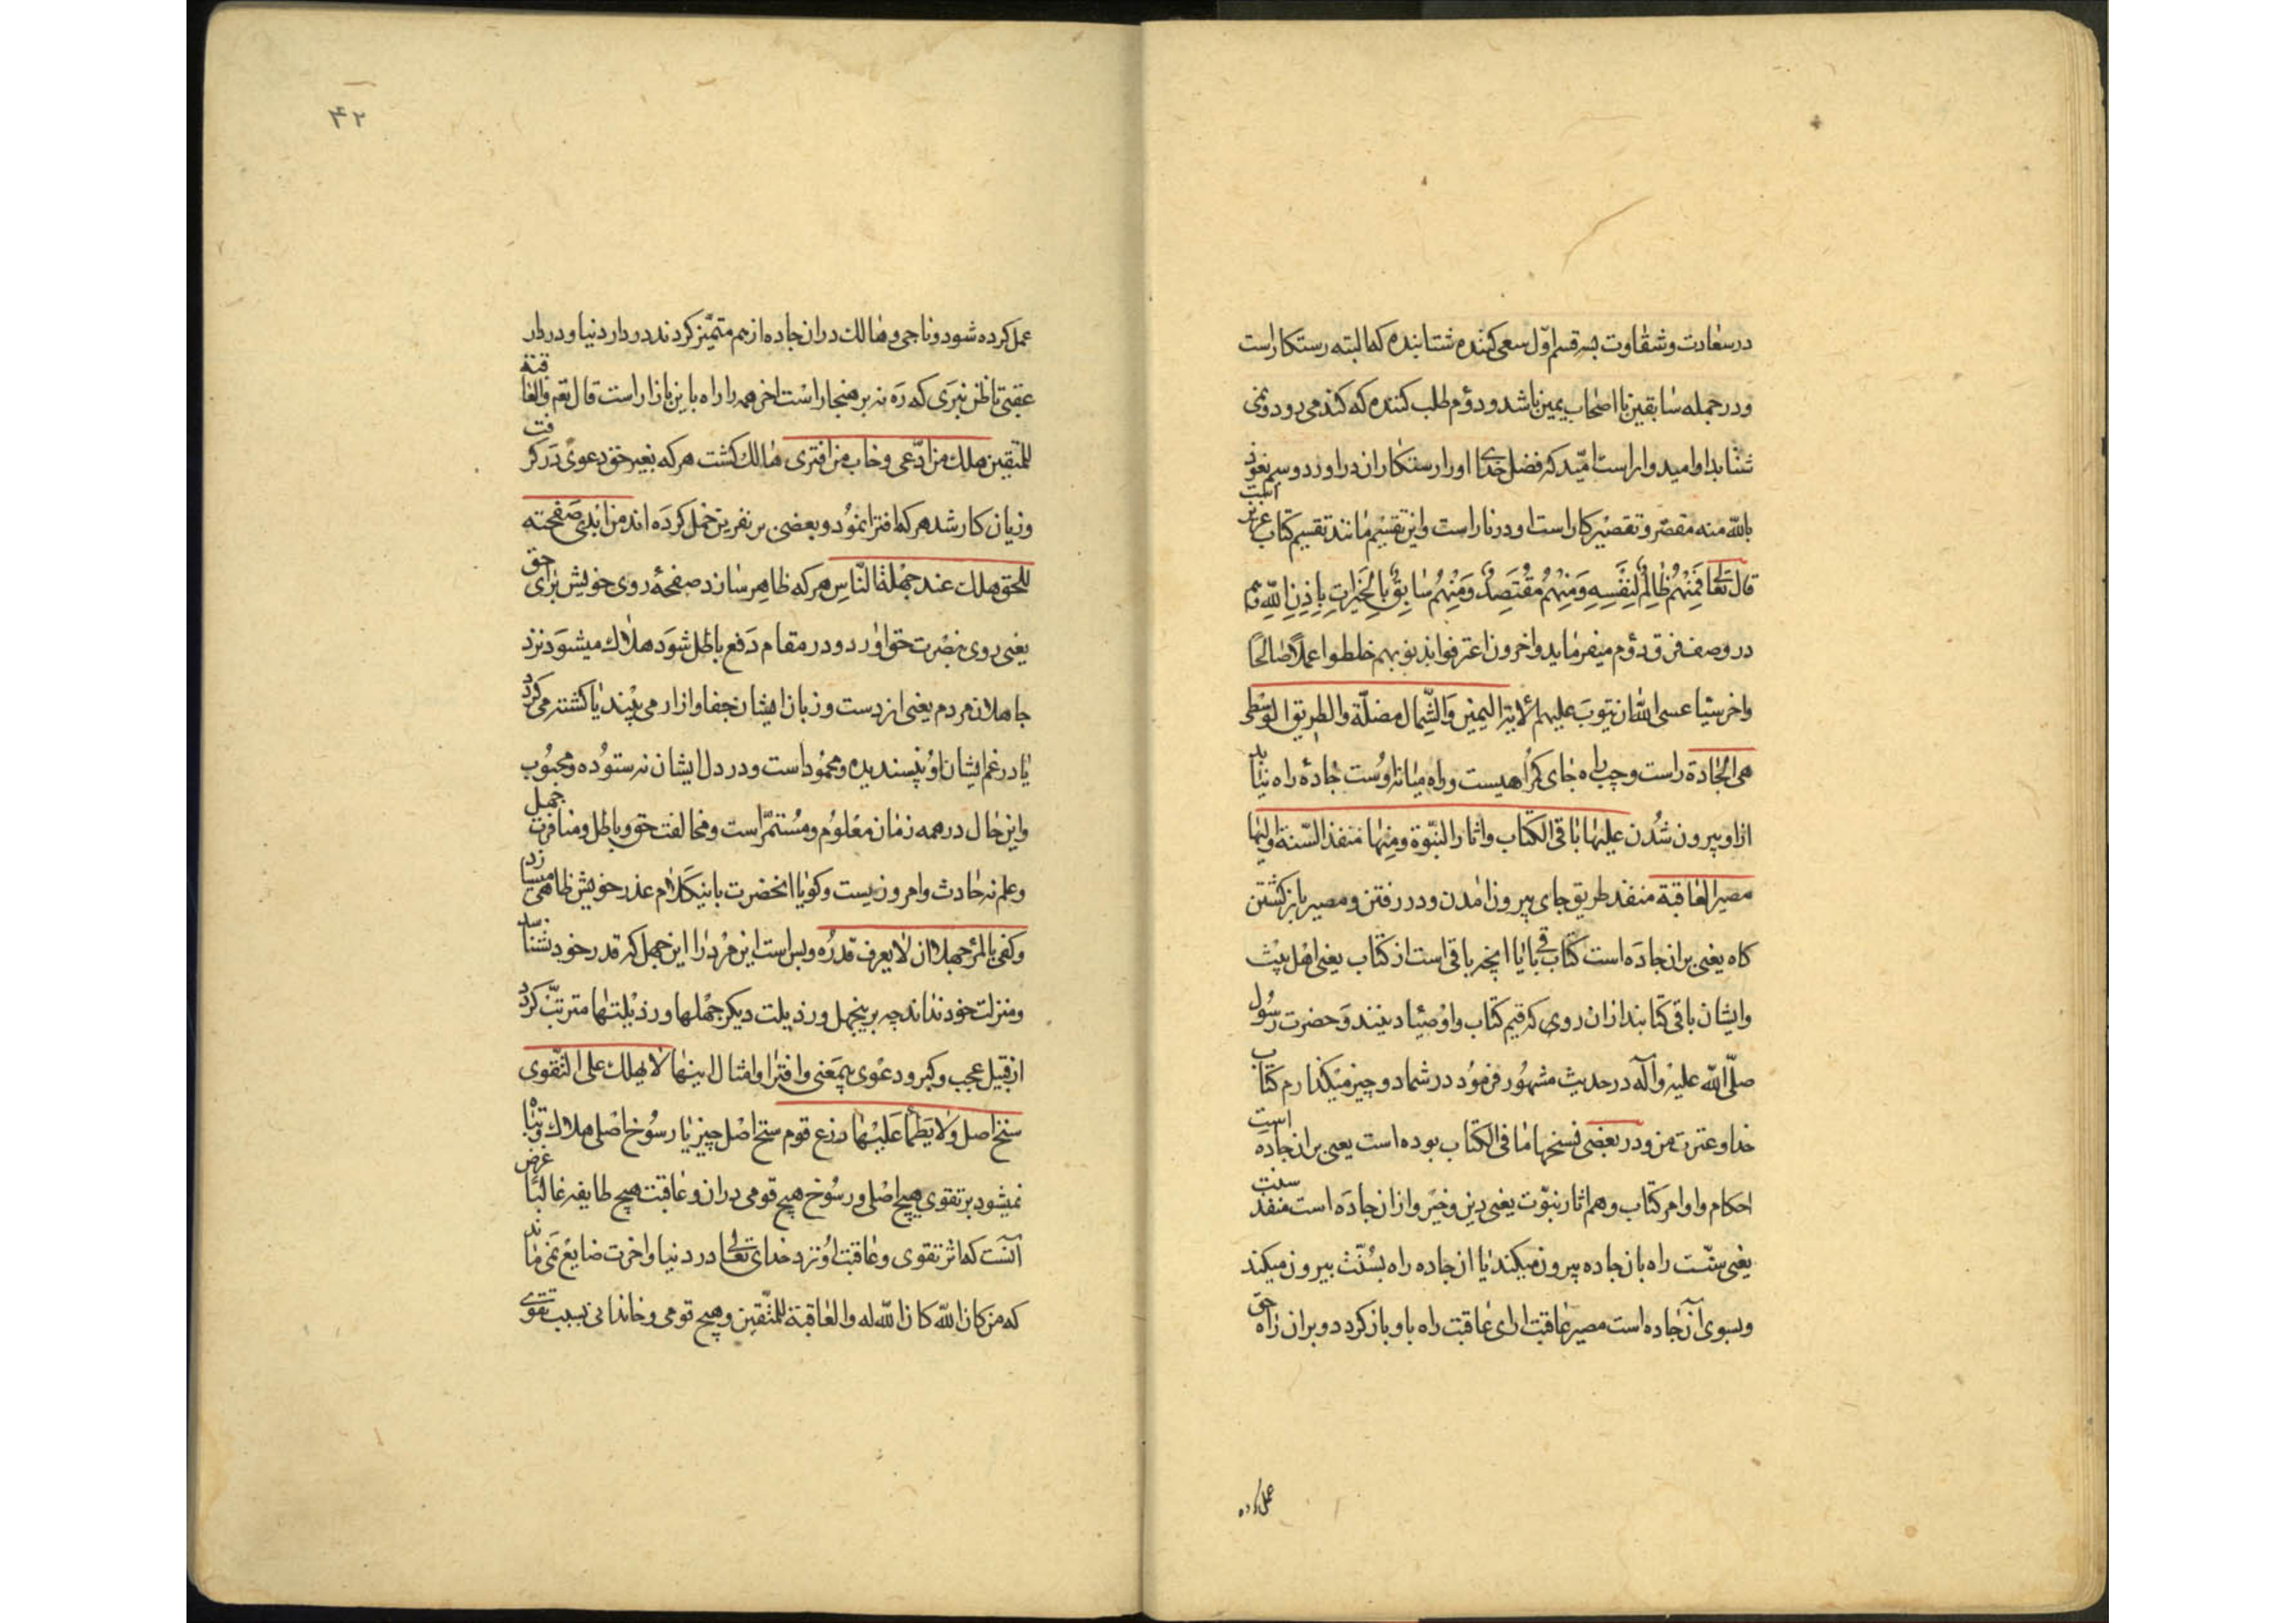 در سعادت و شقاوت بسه قسم اوّل سعی کننده شتابنده که البته رستکار است
و در جمله سابقین با اصحاب یمین باشد و دوم طلب کننده که کند می رود و نمی
شتابد او امیدوار است امید که فضل خدای او را رستکاران در آورد و سیم نعوذ
بالله منه مقصّر و تقصیر کار است او در نار است و این تقسیم مانند تقسیم کتاب عزیز است
قال تعالی فَمِنْهُمْ ظَالِمٌ لِنَفْسِهِ وَمِنْهُمْ مُقْتَصِدٌ وَمِنْهُمْ سَابِقٌ بِالْخَيْرَاتِ بِإِذْنِ اللّٰهِ و هم
در وصف فرق دوم میفرماید و اخرون اعترفوا بذنوبهم خلطوا عملاً صالحًا
و اخر سیئا عسی الله ان یتوب علیهم الایة الیمین وَالشّمال مضلّة والطریق الوسطی
هی الجادة راست و چپ راه جای کمراهیست و راه میانه اوست جادهٔ راه نباید
ازاو بیرون شدن علیها باقی الکتاب واثار النبّوة ومنها منفذ السّنة والیها
مصیر العاقبة منفذ طریق جای بیرون امدن و در رفتن و مصیر باز کشتن
کاه یعنی بران جاده است کتاب باقی یا انچه باقی است از کتاب یعنی اهل بیت
وایشان باقی کتابند ازان روی که قیم کتاب و اوصیاء دینند و حضرت رسول
صلّی اللّه علیه وآله در حدیث مشهور فرمود در شما دو چیز میکذارم کتاب
خدا و عترت من و در بعضی نسخها ما فی الکتاب بوده است یعنی بران جاده است
احکام و اوامر کتاب و هم اثار نبوّت یعنی دین و خیر و ازان جاده است منفذ سنت
یعنی سنّت راه بان جاده بیرون میکند یا ازان جاده راه بسُنّت بیرون میکند
وبسوی آن جاده است مصیر عاقبت ارای عاقبت راه باو باز کردد و بران راه حق
عمل کرده
۴۲
عمل کرده شود و ناجی و هالک دران جاده از هم متمیّز کردند در دار دنیا و در دار
عقبی تا ظن نبری که ره نه بر هنجار است اخر همه را راه باین بازار است قال تعم والعاقبة
للمتّقین هلک من ادّعی وخاب من افتری هالک کشت هر که بغیر حق دعوی در کرفت
و زیان کار شد هر که افترا نمود و بعضی بر نفرین حمل کرده اند من ابدی صفحته
للحق هلک عند جهلة النّاس هر که ظاهر سازد صفحهٔ روی خویش برای حق
یعنی روی بنصرت حق اورد و در مقام دفع باطل شود هلاک میشود نزد
جاهلان مردم یعنی از دست و زبان ایشان جفا و ازار می بیند یا کشته می کردد
یا در رغم ایشان او پسندیده و محمود است و در دل ایشان نه ستوده و محبوب
و این حال در همه زمان معلوم و مستمرّ است و مخالفت حق و باطل و منافرت جهل
و علم نه حادث و امروزیست و کویا انحضرت باین کلام عذر خویش ظاهر میسازد
وکفی بالمرٔ جهلا ان لا یعرف قدرُه و بس است این مرد را این جهل که قدر خود نشناسد
و منزلت خود نداند چه بر اینجهل و رذیلت دیکر جهلها و رذیلتها مترتّب کردد
از قبیل عجب و کبر و دعوی بیمعنی و افترا و امثال اینها لا یهلک علی التّقوی
سنخ اصل ولا یظمأ علیها زرع قوم سنخ اصل چیز یا رسوخ اصلی هلاک و تباه
نمیشود بر تقوی هیچ اصلی و رسوخ هیچ قومی دران و عاقبت هیچ طایفه غالبًا غرض
آنست که اثر تقوی و عاقبت او نزد خدای تعالی در دنیا و اخرت ضایع نمی ماند
که من کان اللّه کان اللّه له والعاقبة للمتّقین و هیچ قومی و خاندانی بسبب تقوی